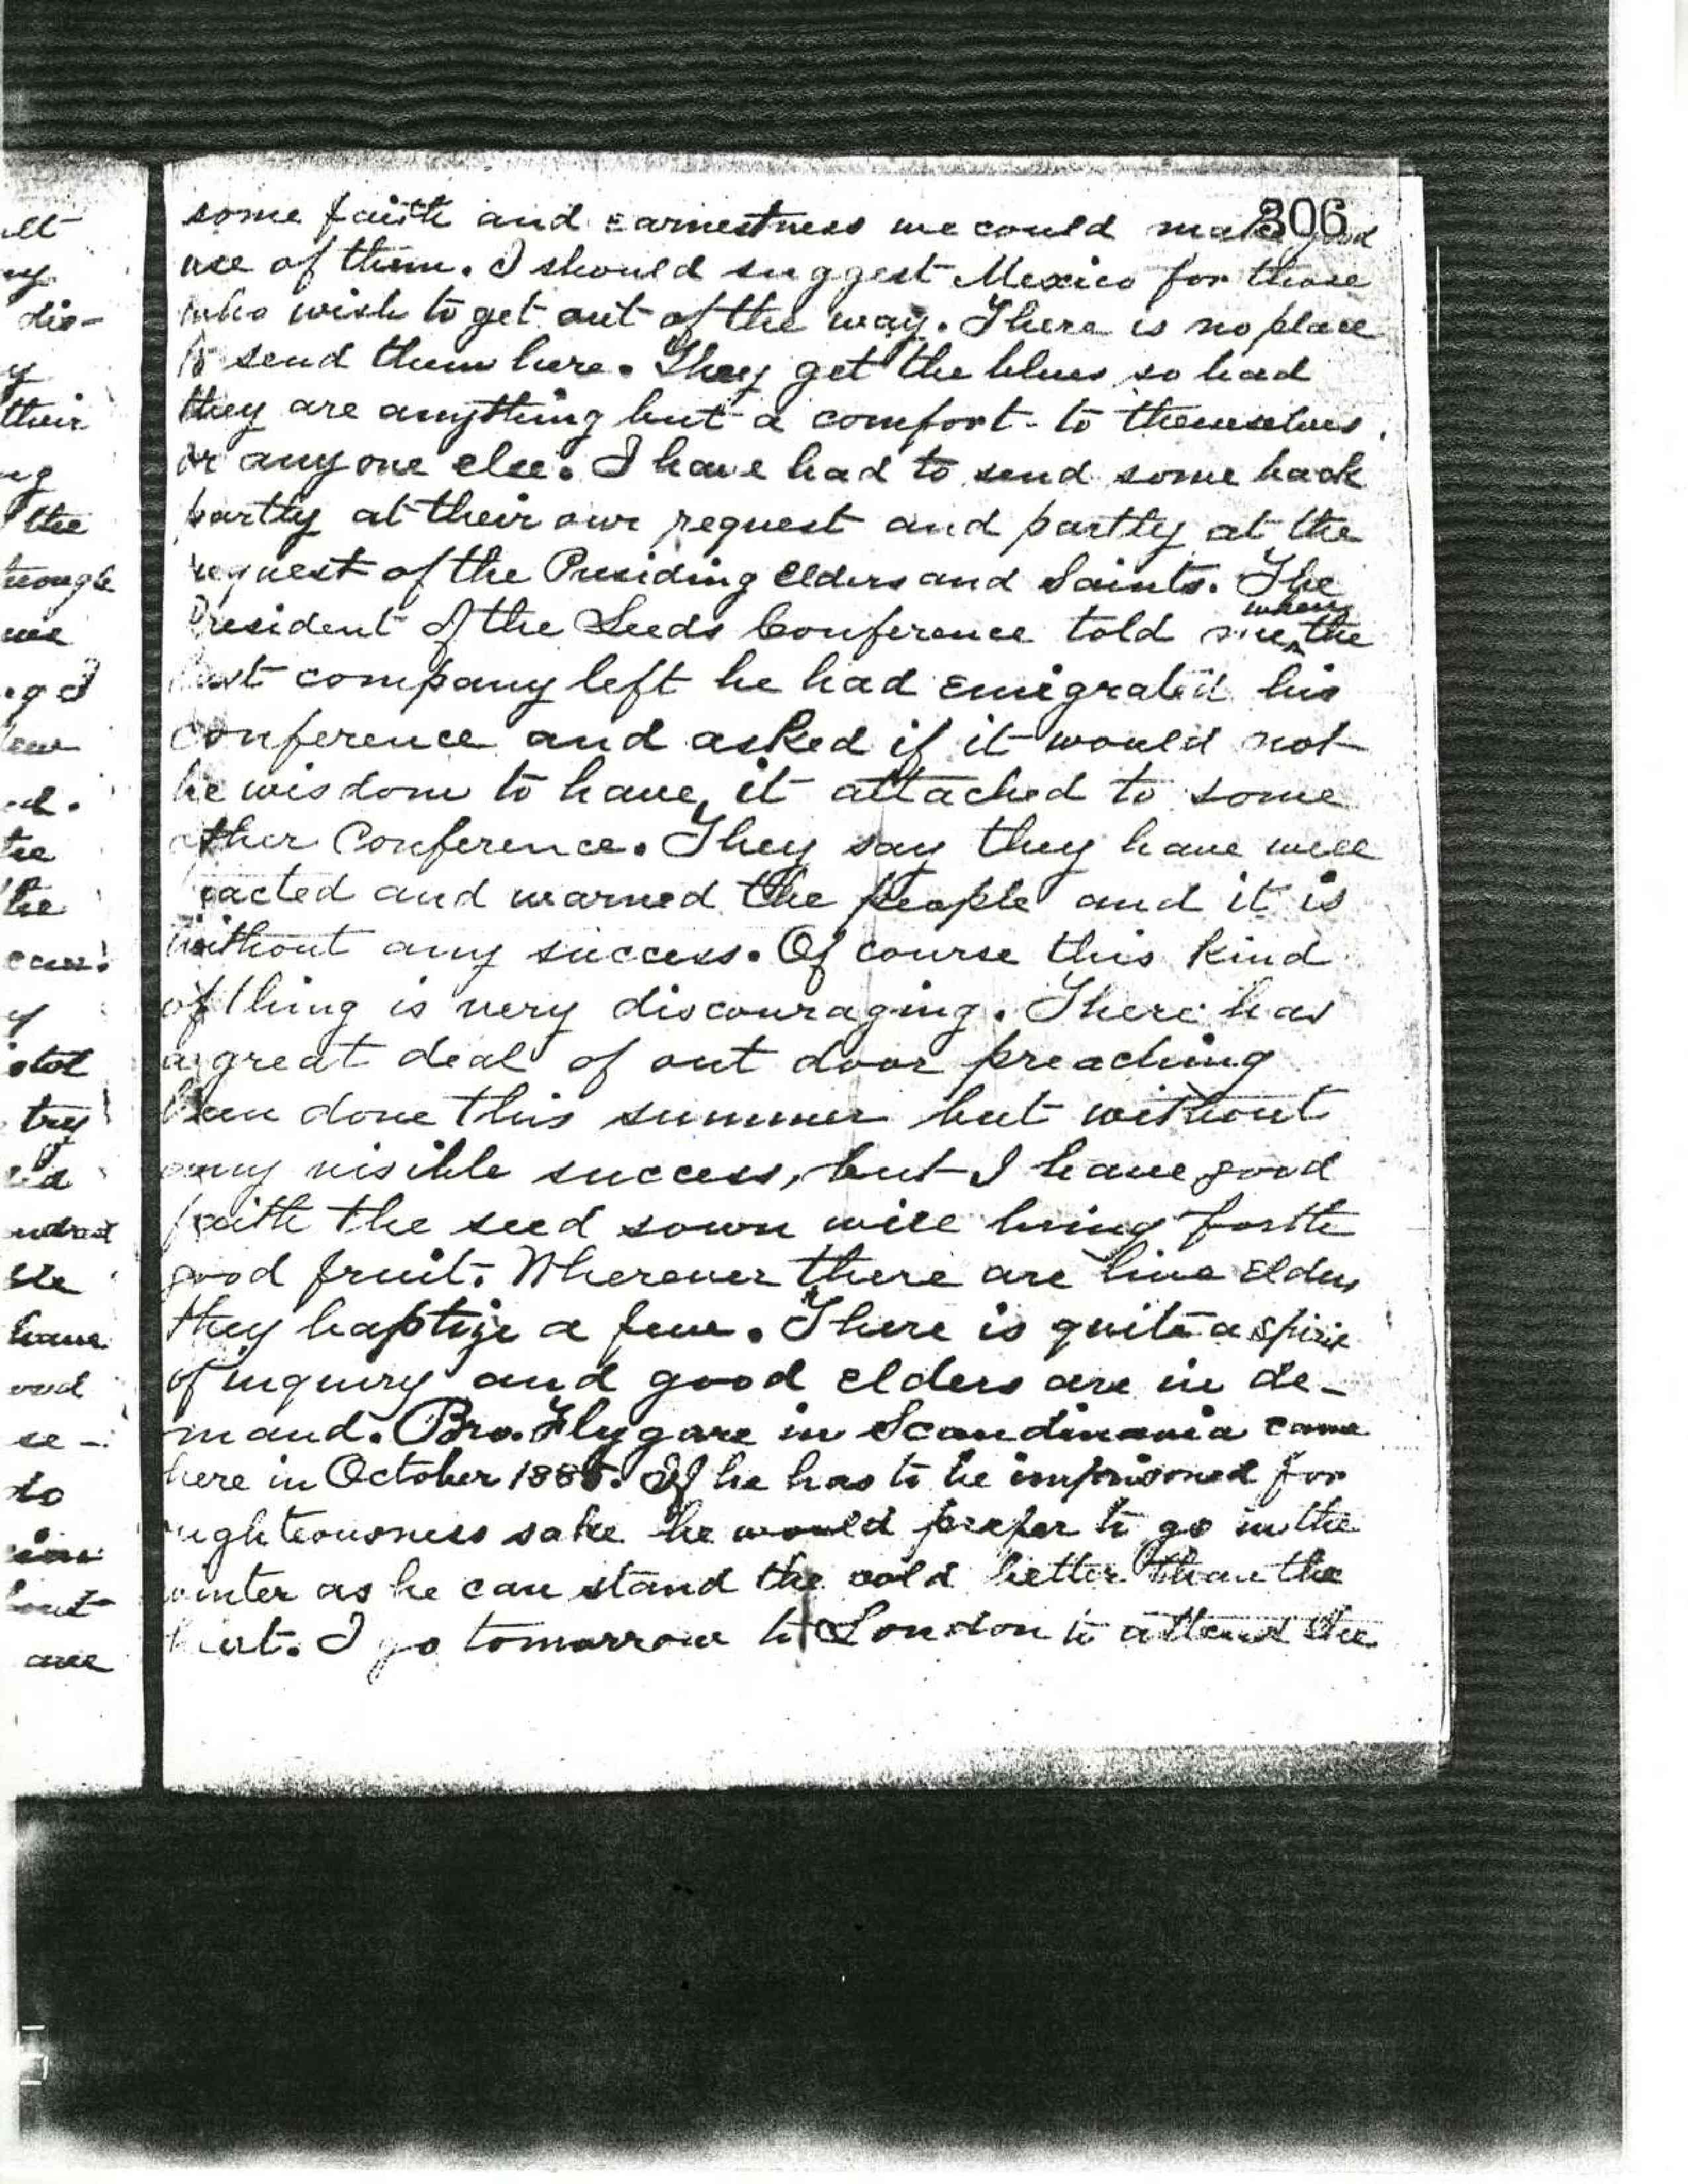 306
some faith and earnestness we could make good
use of them. I should suggest Mexico for those
who wish to get out of the way. There is no place
to send them here. They get the blues so bad
they are anything but a comfort to themselves
or anyone else. I have had to send some back
partly at their own request and partly at the
request of the Presiding Elders and Saints. The
President of the Leeds Conference told me when the
last company left he had emigrated his
conference and asked if it would not
be wisdom to have it attached to some
other Conference. They say they have well
tracted and warned the people and it is
without any success. Of course this kind
of thing is very discouraging. There has
a great deal of out door preaching
been done this summer but without
any visible success, but I have good
faith the seed sown will bring forth
good fruit. Wherever there are live elders
they baptize a few. There is quite a spirit
of inquiry and good elders are in de-
mand. Bro. Flygare in Scandinavia came
here in October 1885. If he has to be imprisoned for
righteousness sake he would prefer to go in the
winter as he can stand the cold better than the
heat. I go tomorrow to London to attend the
dis-
their
the
have
are